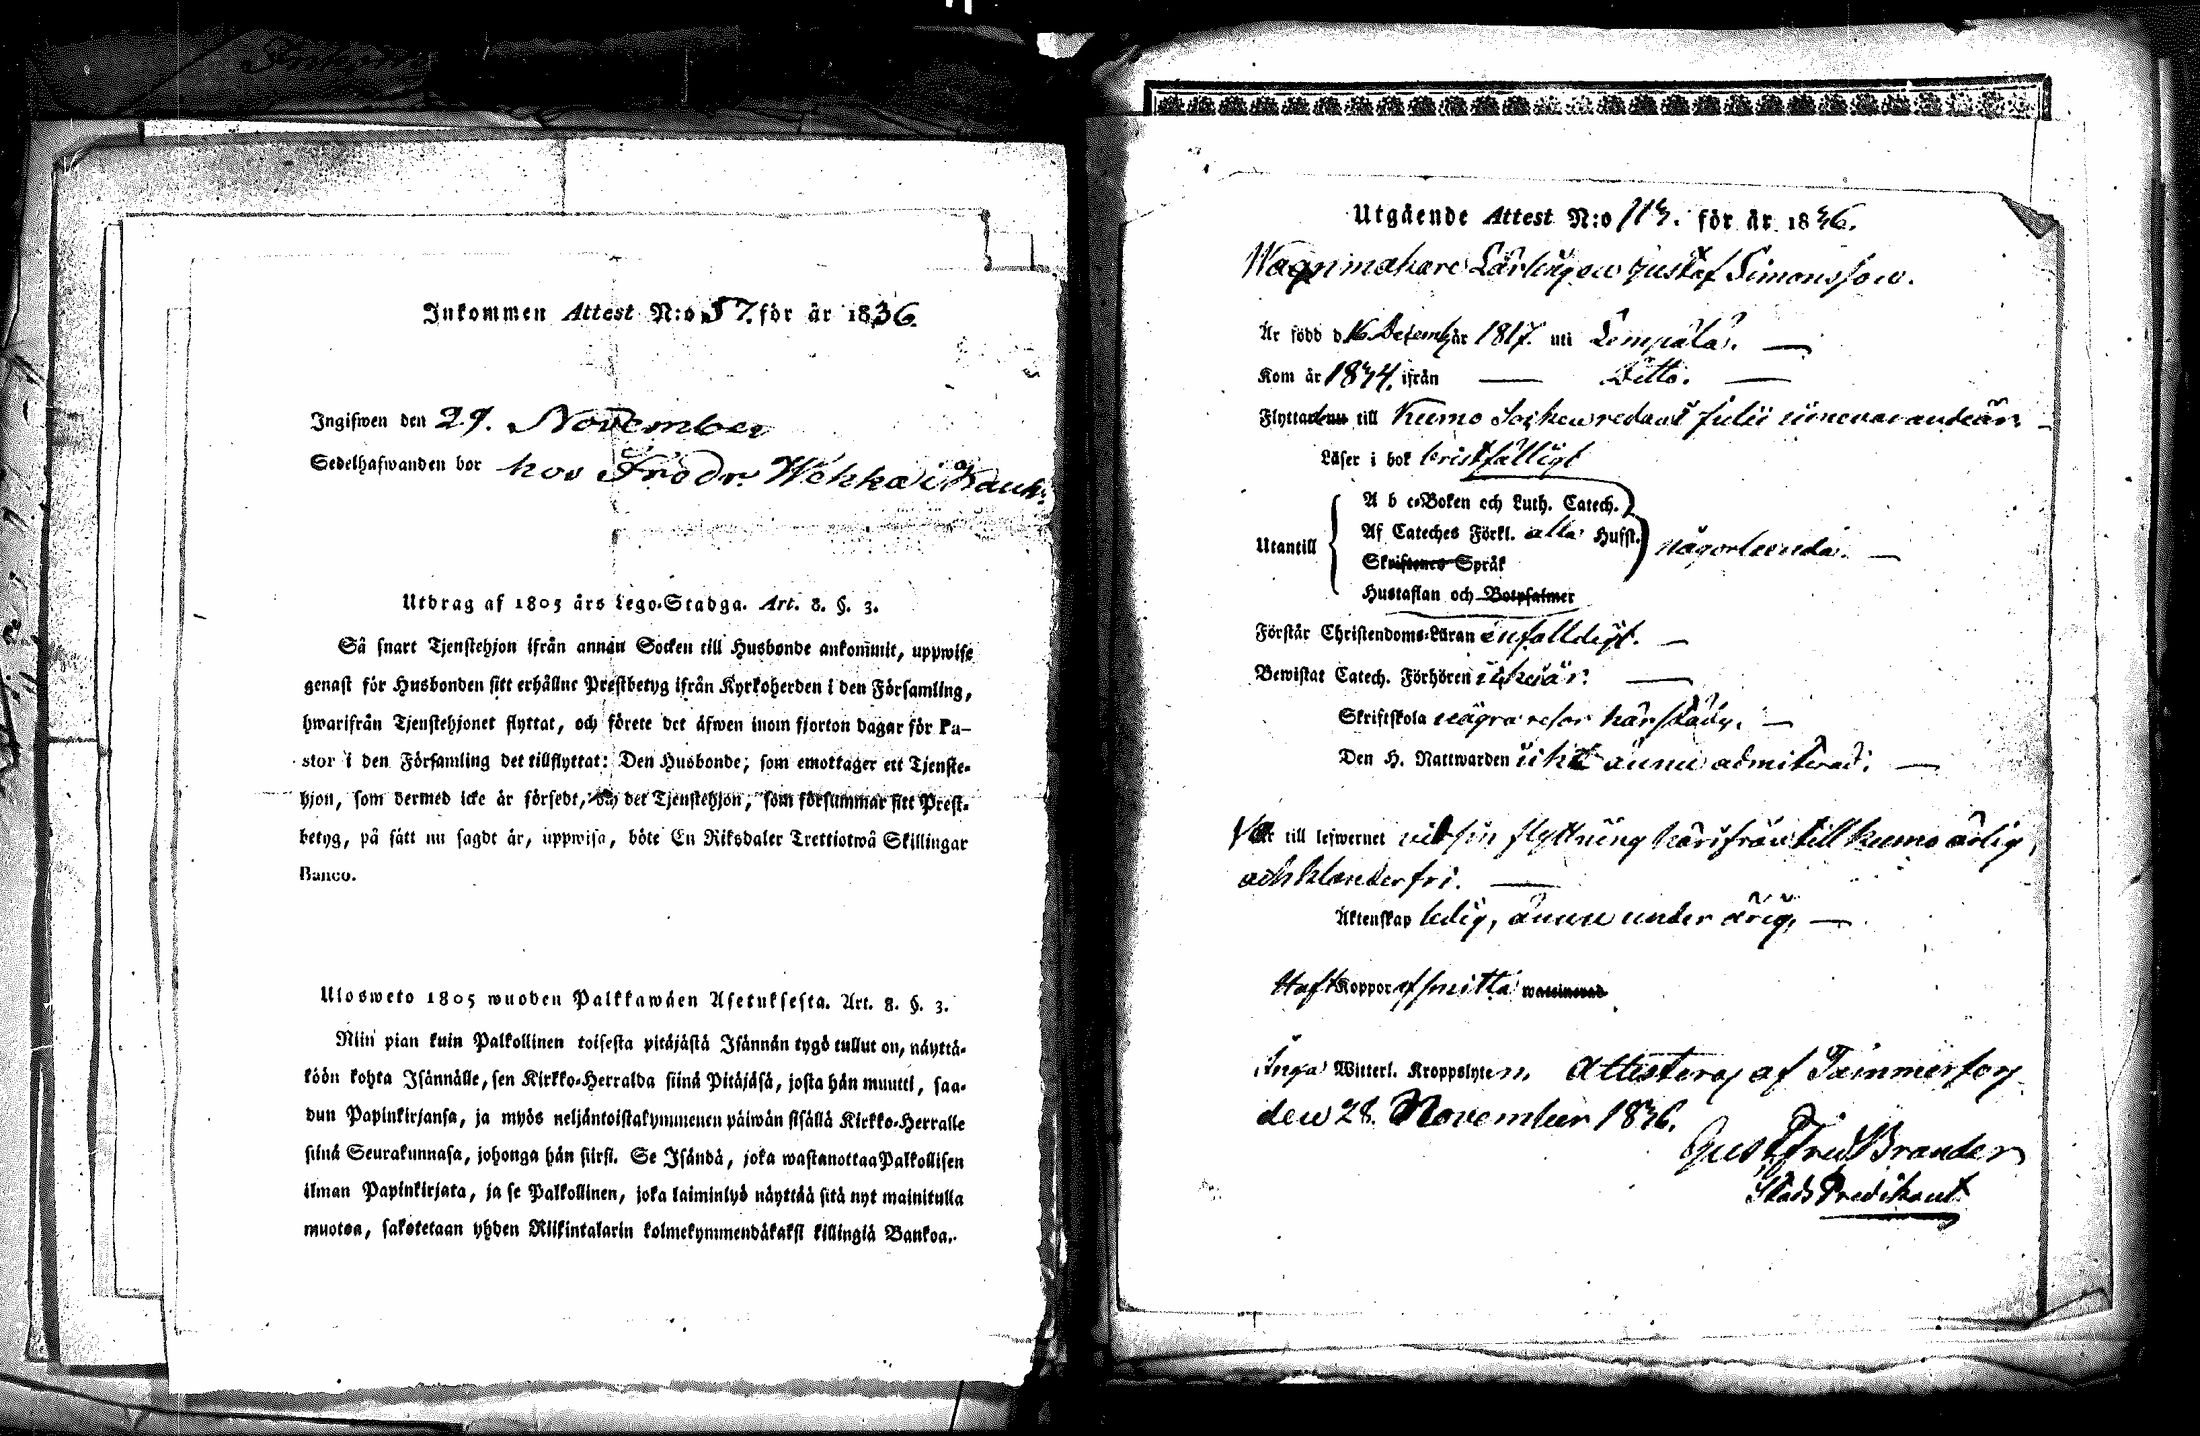 Inkommen Attest N:o 57. för år 1836.
Ingifwen den 29. November
Sedelhafwanden bor hos Fredr Wehka i
Utdrag af 1805 års Lego-Stadga. Art. 8. §. 3.
Så snart Tjenstehjon ifrån annan Socken till Husbonde ankommit, uppwise
genast för Husbonden sitt erhållne Prestbetyg ifrån Kyrkoherden i den Församling,
hwarifrån Tjenstehjonet flyttat, och förete det äfwen inom fjorton dagar för Pa-
stor i den Församling det tillflyttat: Den Husbonde, som emottager ett Tjenste-
hjon, som dermed icke är försedt, och det Tjenstehjon, som försummar sitt Prest-
betyg, på sätt nu sagdt är, uppwisa, böte En Riksdaler Trettiotwå Skillingar
Banco.
Ulosweto 1805 wuoden Palkkawäen Asetuksesta. Art. 8. §. 3.
Niin pian kuin Palkollinen toisesta pitäjästä Isännän tygö tullut on, näyttä-
köön kohta Isännälle, sen Kirkko-Herralda siinä Pitäjäsä, josta hän muutti, saa-
dun Papinkirjansa, ja myös neljäntoistakymmenen päiwän sisällä Kirkko-Herralle
siinä Seurakunnasa, johonga hän siirsi. Se Isändä, joka wastanottaa Palkollisen
ilman Papinkirjata, ja se Palkollinen, joka laiminlyö näyttää sitä nyt mainitulla
muotoa, sakotetaan yhden Riikintalarin kolmekymmendäkaksi killingiä Bankoa.
Utgående Attest N:o 113. för år 1836.
Wagnmakare Lärlingen Gustaf Simonsson.
Är född d 16 Decemb. år 1817. uti Lempälä. —
Kom år 1834. ifrån — Ditto. —
Flyttade till Kumo Socken redan i Julii innevarande år —
Läser i bok bristfälligt
A b c-Boken och Luth. Catech.
Utantill Af Cateches Förkl. alla Hufst. någorlunda. —
Skriftenes Språk
Hustaflan och Botpsalmer
Förstår Christendoms-Läran enfalldigt. —
Bewistat Catech. Förhören i år. —
Skriftskola några resor härstädes. —
Den H. Nattwarden icke ännu admitterad. —
Var till lefwernet vid sin flyttning härifrån till Kumo ärlig
och klanderfri. —
Äktenskap ledig, ännu under årig, —
Haft Koppor af smitta waccinerad
Inga Witterl. Kroppslyten. Attesteras af Tammerfors
den 28. November 1836.
Gust Fred Brander
Stads Predikant